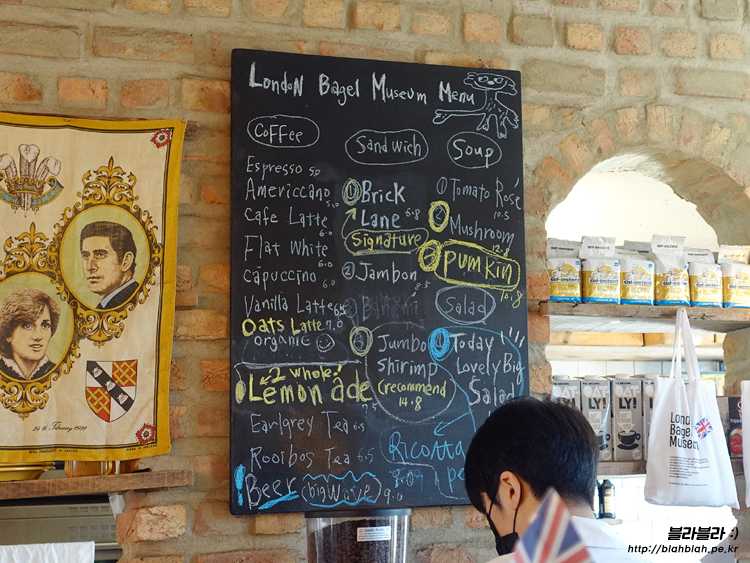 London Bagel Museum Menu
Coffee
Espresso 5.0
Americcano 5.0
Cafe Latte 6.0
Flat White 6.0
cápuccino 6.0
Vanilla Latte 6.5
Oats Latte 7.0
organic
2 whole!
Lemonade 7.5
Earlgrey Tea 6.5
Rooibos Tea 6.5
Beer bigWave 9.0
Sandwich
① Brick
Lane 6.8
Signature
② Jambon 8.5
③ Jumbo
Shrimp
(recommend
14.8
Ricotta
Soup
① Tomato Rosé
10.5
② Mushroom
12.8
Pumkin
10.8
Salad
④ Today
Lovely Big
Salad
24th February 1981
LY!
LY!
London
Bagel
Museum
블라블라 :)
http://blahblah.pe.kr